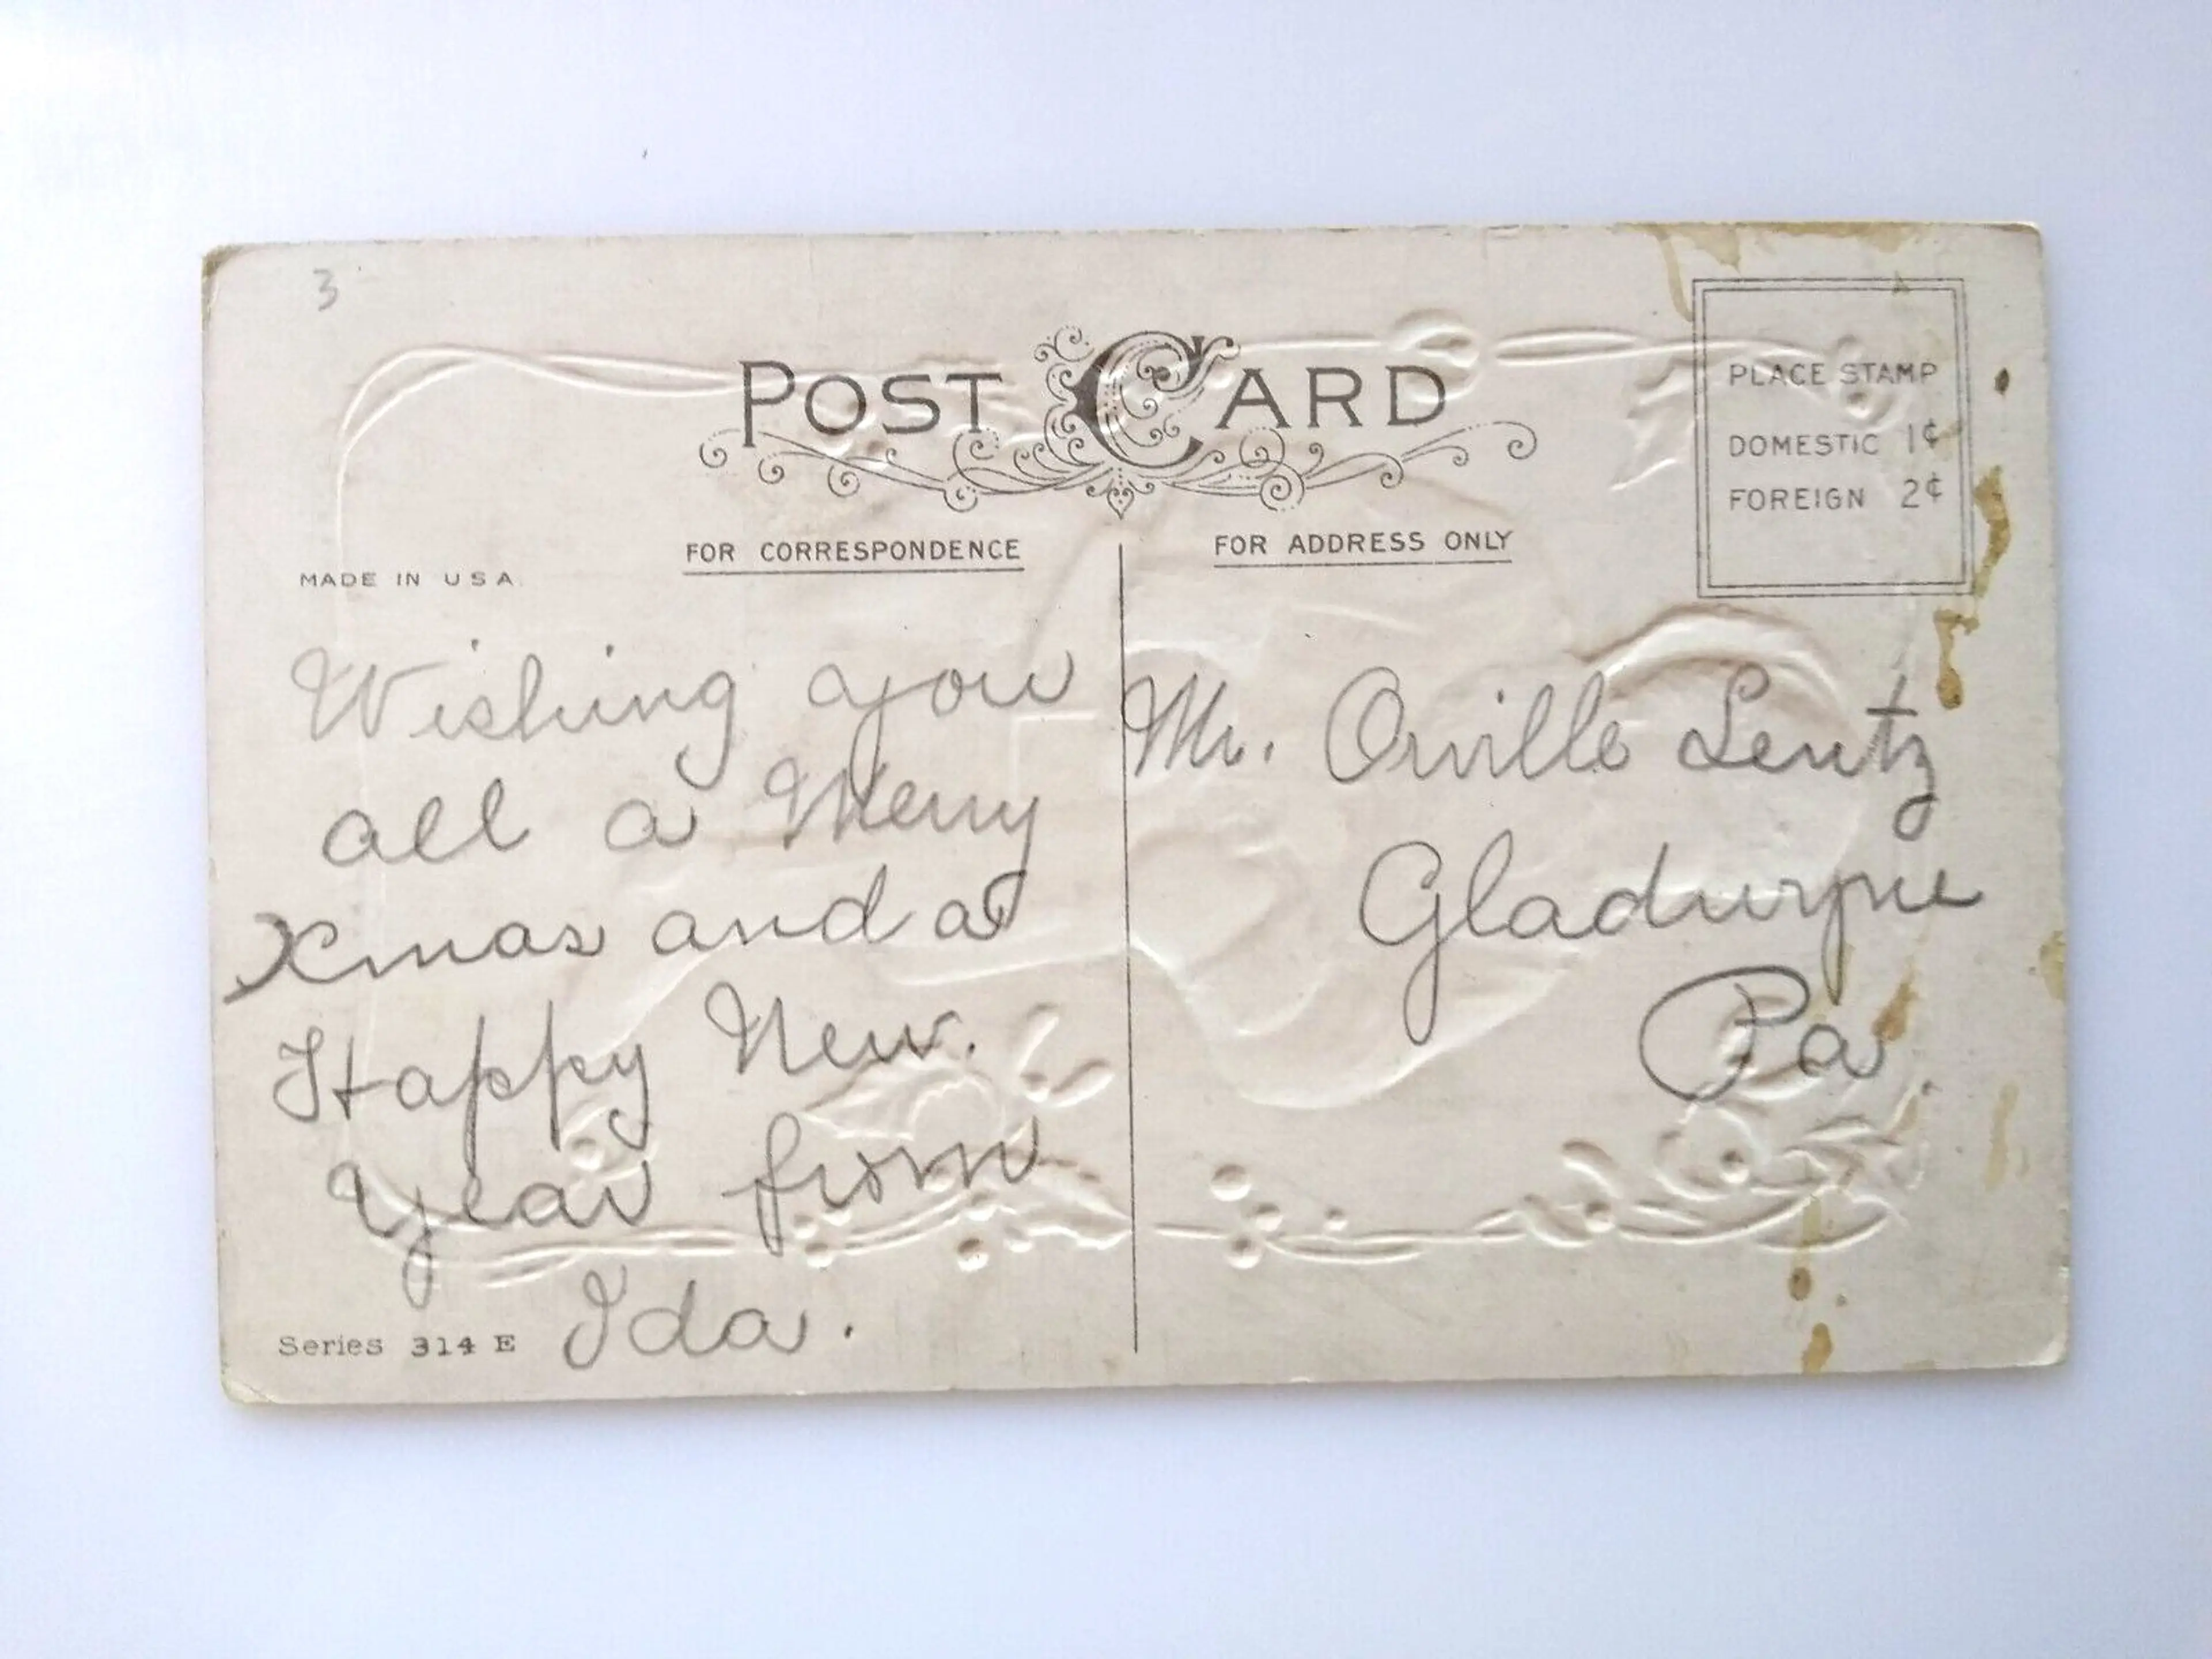 3
POST CARD
PLACE STAMP
DOMESTIC 1¢
FOREIGN 2¢
FOR CORRESPONDENCE
FOR ADDRESS ONLY
MADE IN USA
Wishing you
all a Merry
Xmas and a
Happy New.
Year from
Ida.
Series 314 E
Mr. Orville Lentz
Gladwyne
Pa.